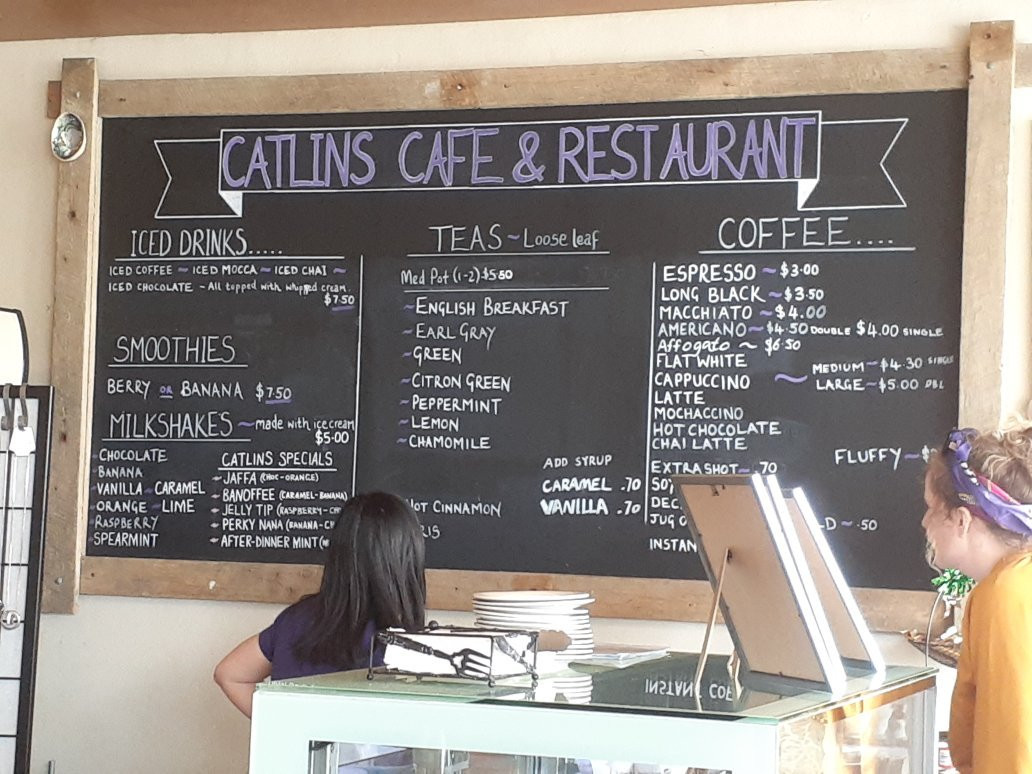 CATLINS CAFE & RESTAURANT
ICED DRINKS.....
ICED COFFEE ~ ICED MOCCA ~ ICED CHAI ~
ICED CHOCOLATE - All topped with whipped cream.
$7.50
SMOOTHIES
BERRY OR BANANA $7.50
MILKSHAKES ~ made with ice cream
$5.00
CHOCOLATE
BANANA
VANILLA ~ CARAMEL
ORANGE ~ LIME
RASPBERRY
SPEARMINT
CATLINS SPECIALS
~ JAFFA (CHOC-ORANGE)
~ BANOFFEE (CARAMEL-BANANA)
~ JELLY TIP (RASPBERRY-
~ PERKY NANA (BANANA-
~ AFTER-DINNER MINT
TEAS ~ Loose leaf
Med Pot (1-2) $5.50
~ ENGLISH BREAKFAST
~ EARL GRAY
~ GREEN
~ CITRON GREEN
~ PEPPERMINT
~ LEMON
~ CHAMOMILE
ADD SYRUP
CARAMEL .70
VANILLA .70
CINNAMON
COFFEE....
ESPRESSO ~ $3.00
LONG BLACK ~ $3.50
MACCHIATO ~ $4.00
AMERICANO ~ $4.50 DOUBLE $4.00 SINGLE
Affogato ~ $6.50
FLAT WHITE
CAPPUCCINO
LATTE
MOCHACCINO
HOT CHOCOLATE
CHAI LATTE
MEDIUM ~ $4.30 SINGLE
LARGE ~ $5.00 DBL
FLUFFY ~
EXTRA SHOT ~ .70
JUG
~ .50
INSTAN